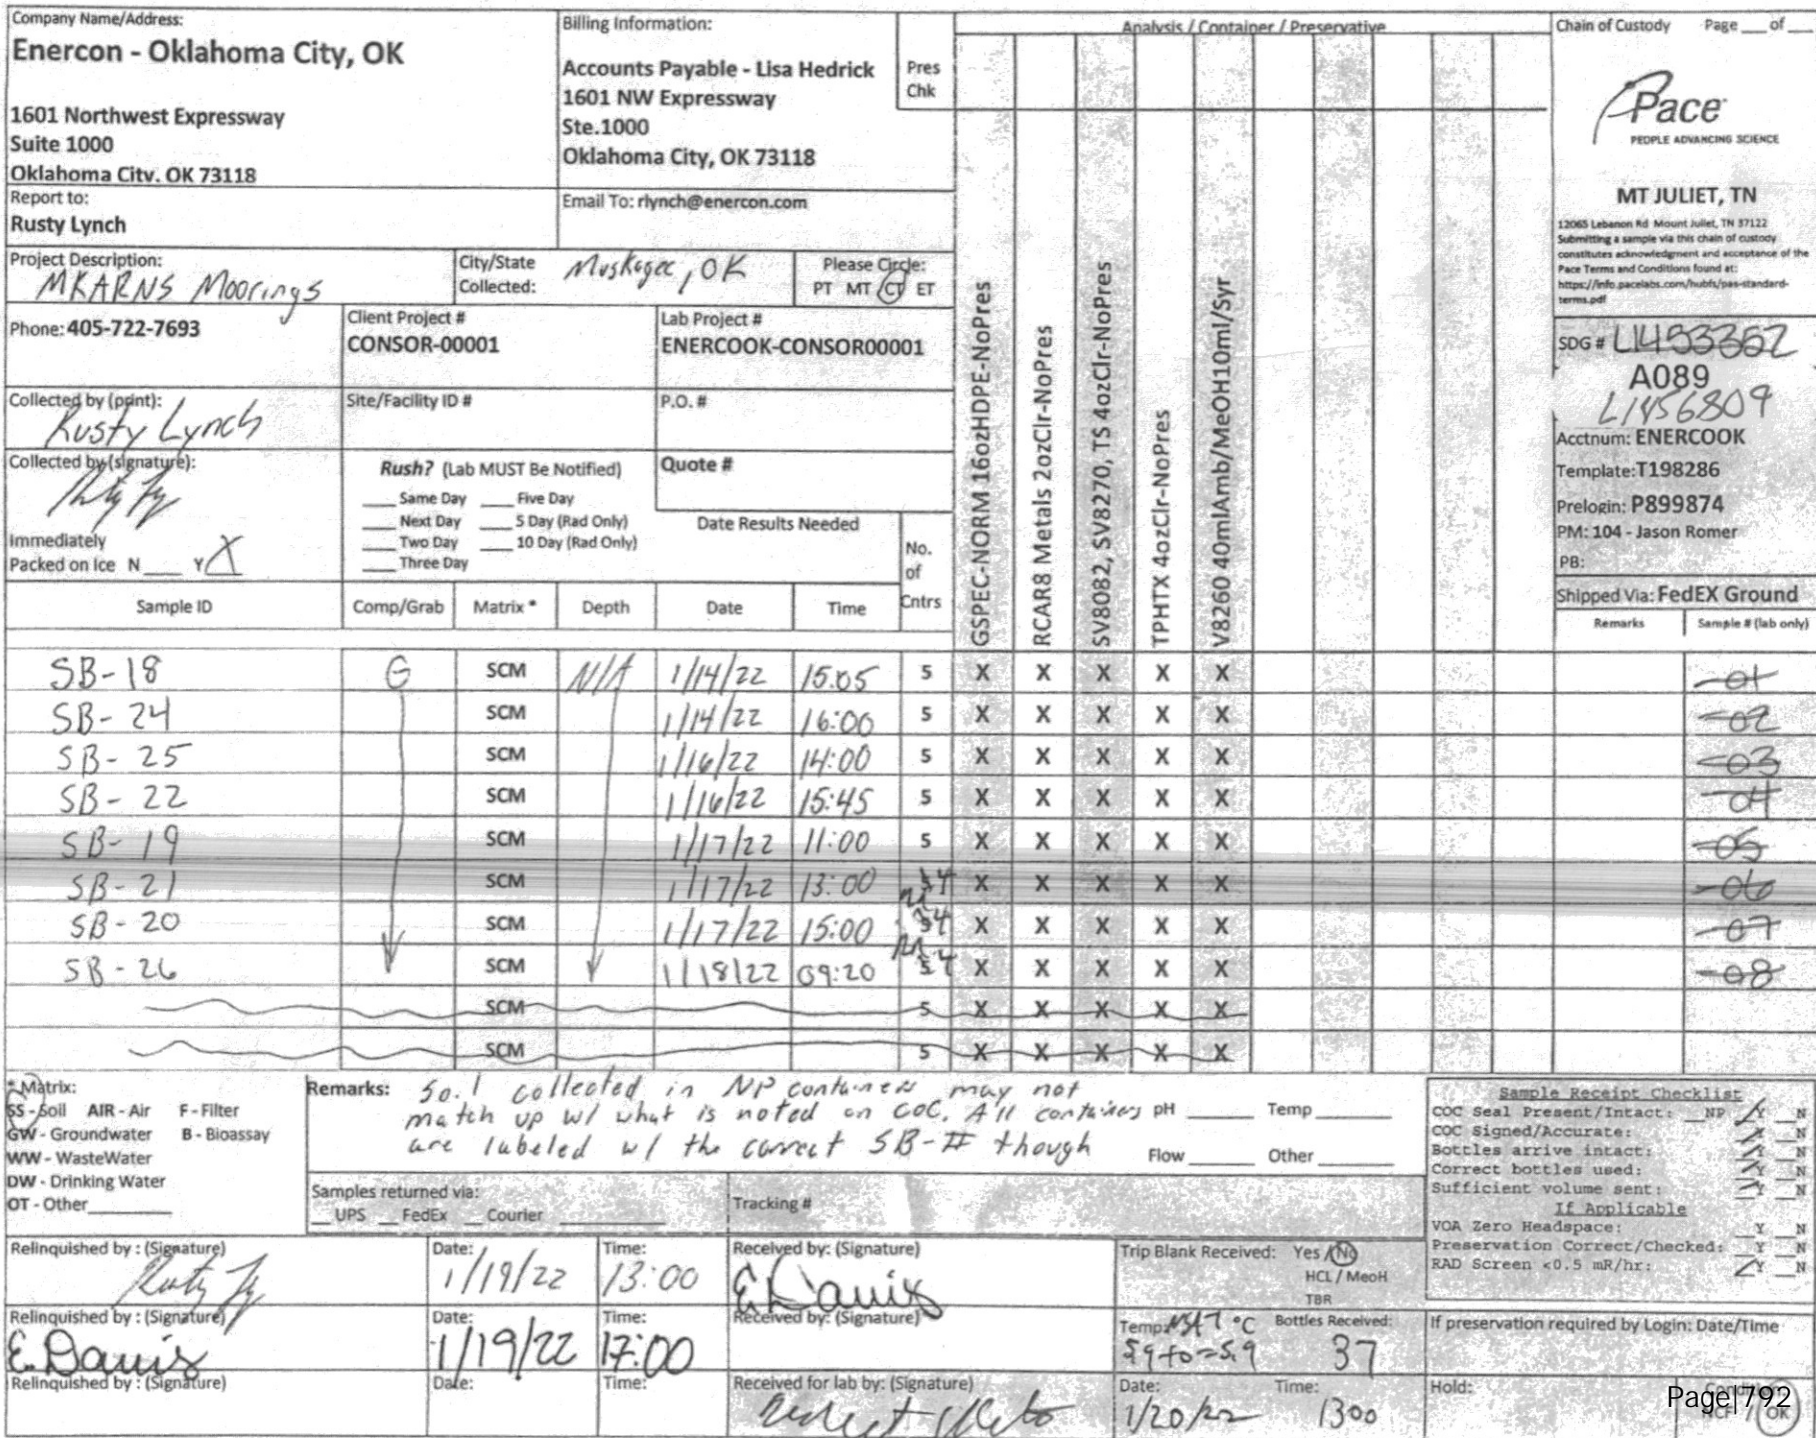 Company Name/Address:
Enercon - Oklahoma City, OK
1601 Northwest Expressway
Suite 1000
Oklahoma City, OK 73118
Billing Information:
Accounts Payable - Lisa Hedrick
1601 NW Expressway
Ste.1000
Oklahoma City, OK 73118
Pres
Chk
Analysis / Container / Preservative
Chain of Custody Page ___ of ___
Pace
PEOPLE ADVANCING SCIENCE
MT JULIET, TN
12065 Lebanon Rd Mount Juliet, TN 37122
Submitting a sample via this chain of custody
constitutes acknowledgment and acceptance of the
Pace Terms and Conditions found at:
https://info.pacelabs.com/hubfs/pas-standard-
terms.pdf
Report to:
Rusty Lynch
Email To: rlynch@enercon.com
Project Description:
MKARNS Moorings
City/State
Collected:
Muskogee, OK
Please Circle:
PT MT CT ET
Phone: 405-722-7693
Client Project #
CONSOR-00001
Lab Project #
ENERCOOK-CONSOR00001
Collected by (print):
Rusty Lynch
Site/Facility ID #
P.O. #
Collected by (signature):
Rush? (Lab MUST Be Notified)
___ Same Day ___ Five Day
___ Next Day ___ 5 Day (Rad Only)
___ Two Day ___ 10 Day (Rad Only)
___ Three Day
Quote #
Date Results Needed
Immediately
Packed on Ice N ___ Y X
No.
of
Cntrs
GSPEC-NORM 16ozHDPE-NoPres
RCAR8 Metals 2ozClr-NoPres
SV8082, SV8270, TS 4ozClr-NoPres
TPHTX 4ozClr-NoPres
V8260 40mlAmb/MeOH10ml/Syr
SDG # L1453362
A089
L1456809
Acctnum: ENERCOOK
Template:T198286
Prelogin: P899874
PM: 104 - Jason Romer
PB:
Shipped Via: FedEX Ground
Sample ID Comp/Grab Matrix * Depth Date Time Remarks Sample # (lab only)
SB-18 G SCM N/A 1/14/22 15:05 5 X X X X X -01
SB-24 SCM 1/14/22 16:00 5 X X X X X -02
SB-25 SCM 1/16/22 14:00 5 X X X X X -03
SB-22 SCM 1/16/22 15:45 5 X X X X X -04
SB-19 SCM 1/17/22 11:00 5 X X X X X -05
SB-21 SCM 1/17/22 13:00 5 4 X X X X X -06
SB-20 SCM 1/17/22 15:00 5 4 X X X X X -07
SB-26 SCM 1/18/22 09:20 5 4 X X X X X -08
SCM 5 X X X X X
SCM 5 X X X X X
* Matrix:
SS - Soil AIR - Air F - Filter
GW - Groundwater B - Bioassay
WW - WasteWater
DW - Drinking Water
OT - Other
Remarks: Soil collected in NP containers may not
match up w/ what is noted on COC. All containers
are labeled w/ the correct SB-# though
pH ___ Temp ___
Flow ___ Other ___
Sample Receipt Checklist
COC Seal Present/Intact: _NP ✓Y _N
COC Signed/Accurate: ✓Y _N
Bottles arrive intact: ✓Y _N
Correct bottles used: ✓Y _N
Sufficient volume sent: ✓Y _N
If Applicable
VOA Zero Headspace: _Y _N
Preservation Correct/Checked: _Y _N
RAD Screen <0.5 mR/hr: ✓Y _N
Samples returned via:
___ UPS ___ FedEx ___ Courier
Tracking #
Relinquished by : (Signature)
Date: 1/19/22
Time: 13:00
Received by: (Signature)
E. Davis
Trip Blank Received: Yes / No
HCL / MeoH
TBR
Relinquished by : (Signature)
E. Davis
Date: 1/19/22
Time: 17:00
Received by: (Signature)
Temp: °C
5.9+0=5.9
Bottles Received:
37
If preservation required by Login: Date/Time
Relinquished by : (Signature)
Date:
Time:
Received for lab by: (Signature)
Date: 1/20/22
Time: 1300
Hold:
NCF / OK
Page|792